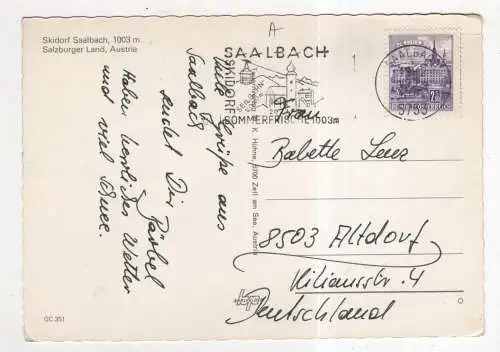 Skidorf Saalbach, 1003 m
Salzburger Land, Austria
A
SAALBACH
SKIDORF
SOMMERFRISCHE 1003m
Viele Grüße aus
Saalbach
sendet Dir
Bärbel
Haben herrliches Wetter
und viel Schnee.
K. Höhne, 5700 Zell am See, Austria
Frau
Babette Lenz
8503 Altdorf
Kilianstr. 4
Deutschland
GC 351